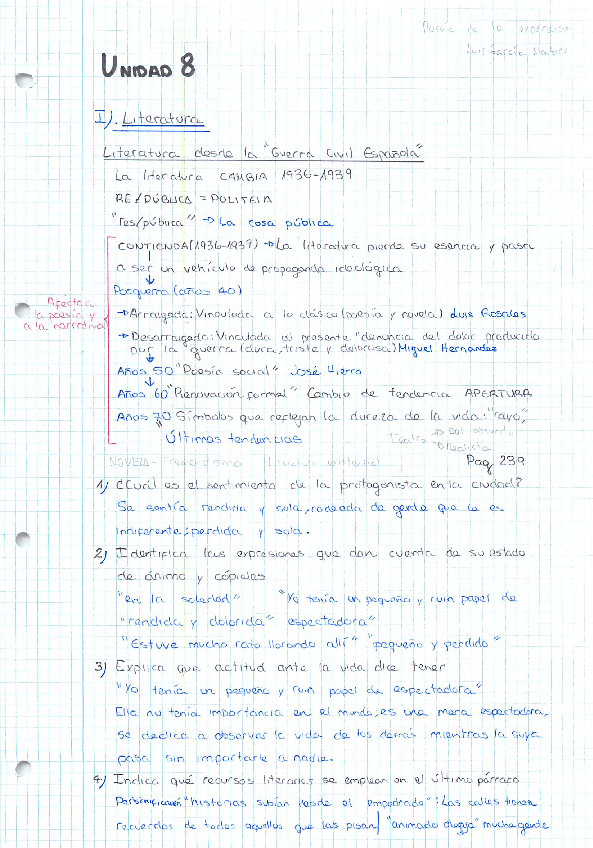 Poesía de la experiencia
Luis García Montero
UNIDAD 8
I). Literatura
Literatura desde la "Guerra Civil Española"
La literatura CAMBIA 1936-1939
RE/PÚBLICA = POLITEIA
"res/pública" → La cosa pública
CONTIENDA (1936-1939) → La literatura pierde su esencia y pasa
a ser un vehículo de propaganda ideológica
Posguerra (años 40)
Afecta a
la poesía y
a la narrativa
→ Arraigada: Vinculada a lo clásico (poesía y novela) Luis Rosales
→ Desarraigada: Vinculada al presente "denuncia del dolor producido
por la guerra (dura, triste y dolorosa) Miguel Hernández
Años 50 "Poesía social" José Hierro
Años 60 "Renovación formal" Cambio de tendencia APERTURA
Años 70 Símbolos que reflejan la dureza de la vida: "rayo",
Últimas tendencias
Teatro → Del absurdo
→ Realista
NOVELA - Tremendismo Literatura existencial
Pag 239
1) ¿Cuál es el sentimiento de la protagonista en la ciudad?
Se sentía rendida y sola, rodeada de gente que le es
indiferente; perdida y sola.
2) Identifica las expresiones que dan cuenta de su estado
de ánimo y cópiales
"en la soledad" "Yo tenía un pequeño y ruin papel de
"rendida y dolorida" espectadora"
"Estuve mucho rato llorando allí" "pequeño y perdido"
3) Explica que actitud ante la vida dice tener
"Yo tenía un pequeño y ruin papel de espectadora"
Ella no tenía importancia en el mundo, es una mera espectadora,
se dedica a observar la vida de los demás mientras la suya
pasa sin importarle a nadie.
4) Indica qué recursos literarios se emplean en el último párraco
Personificación "historias subían desde el empedrado": Las calles tienen
recuerdos de todos aquellos que las pisan/ "animado" mucha gente